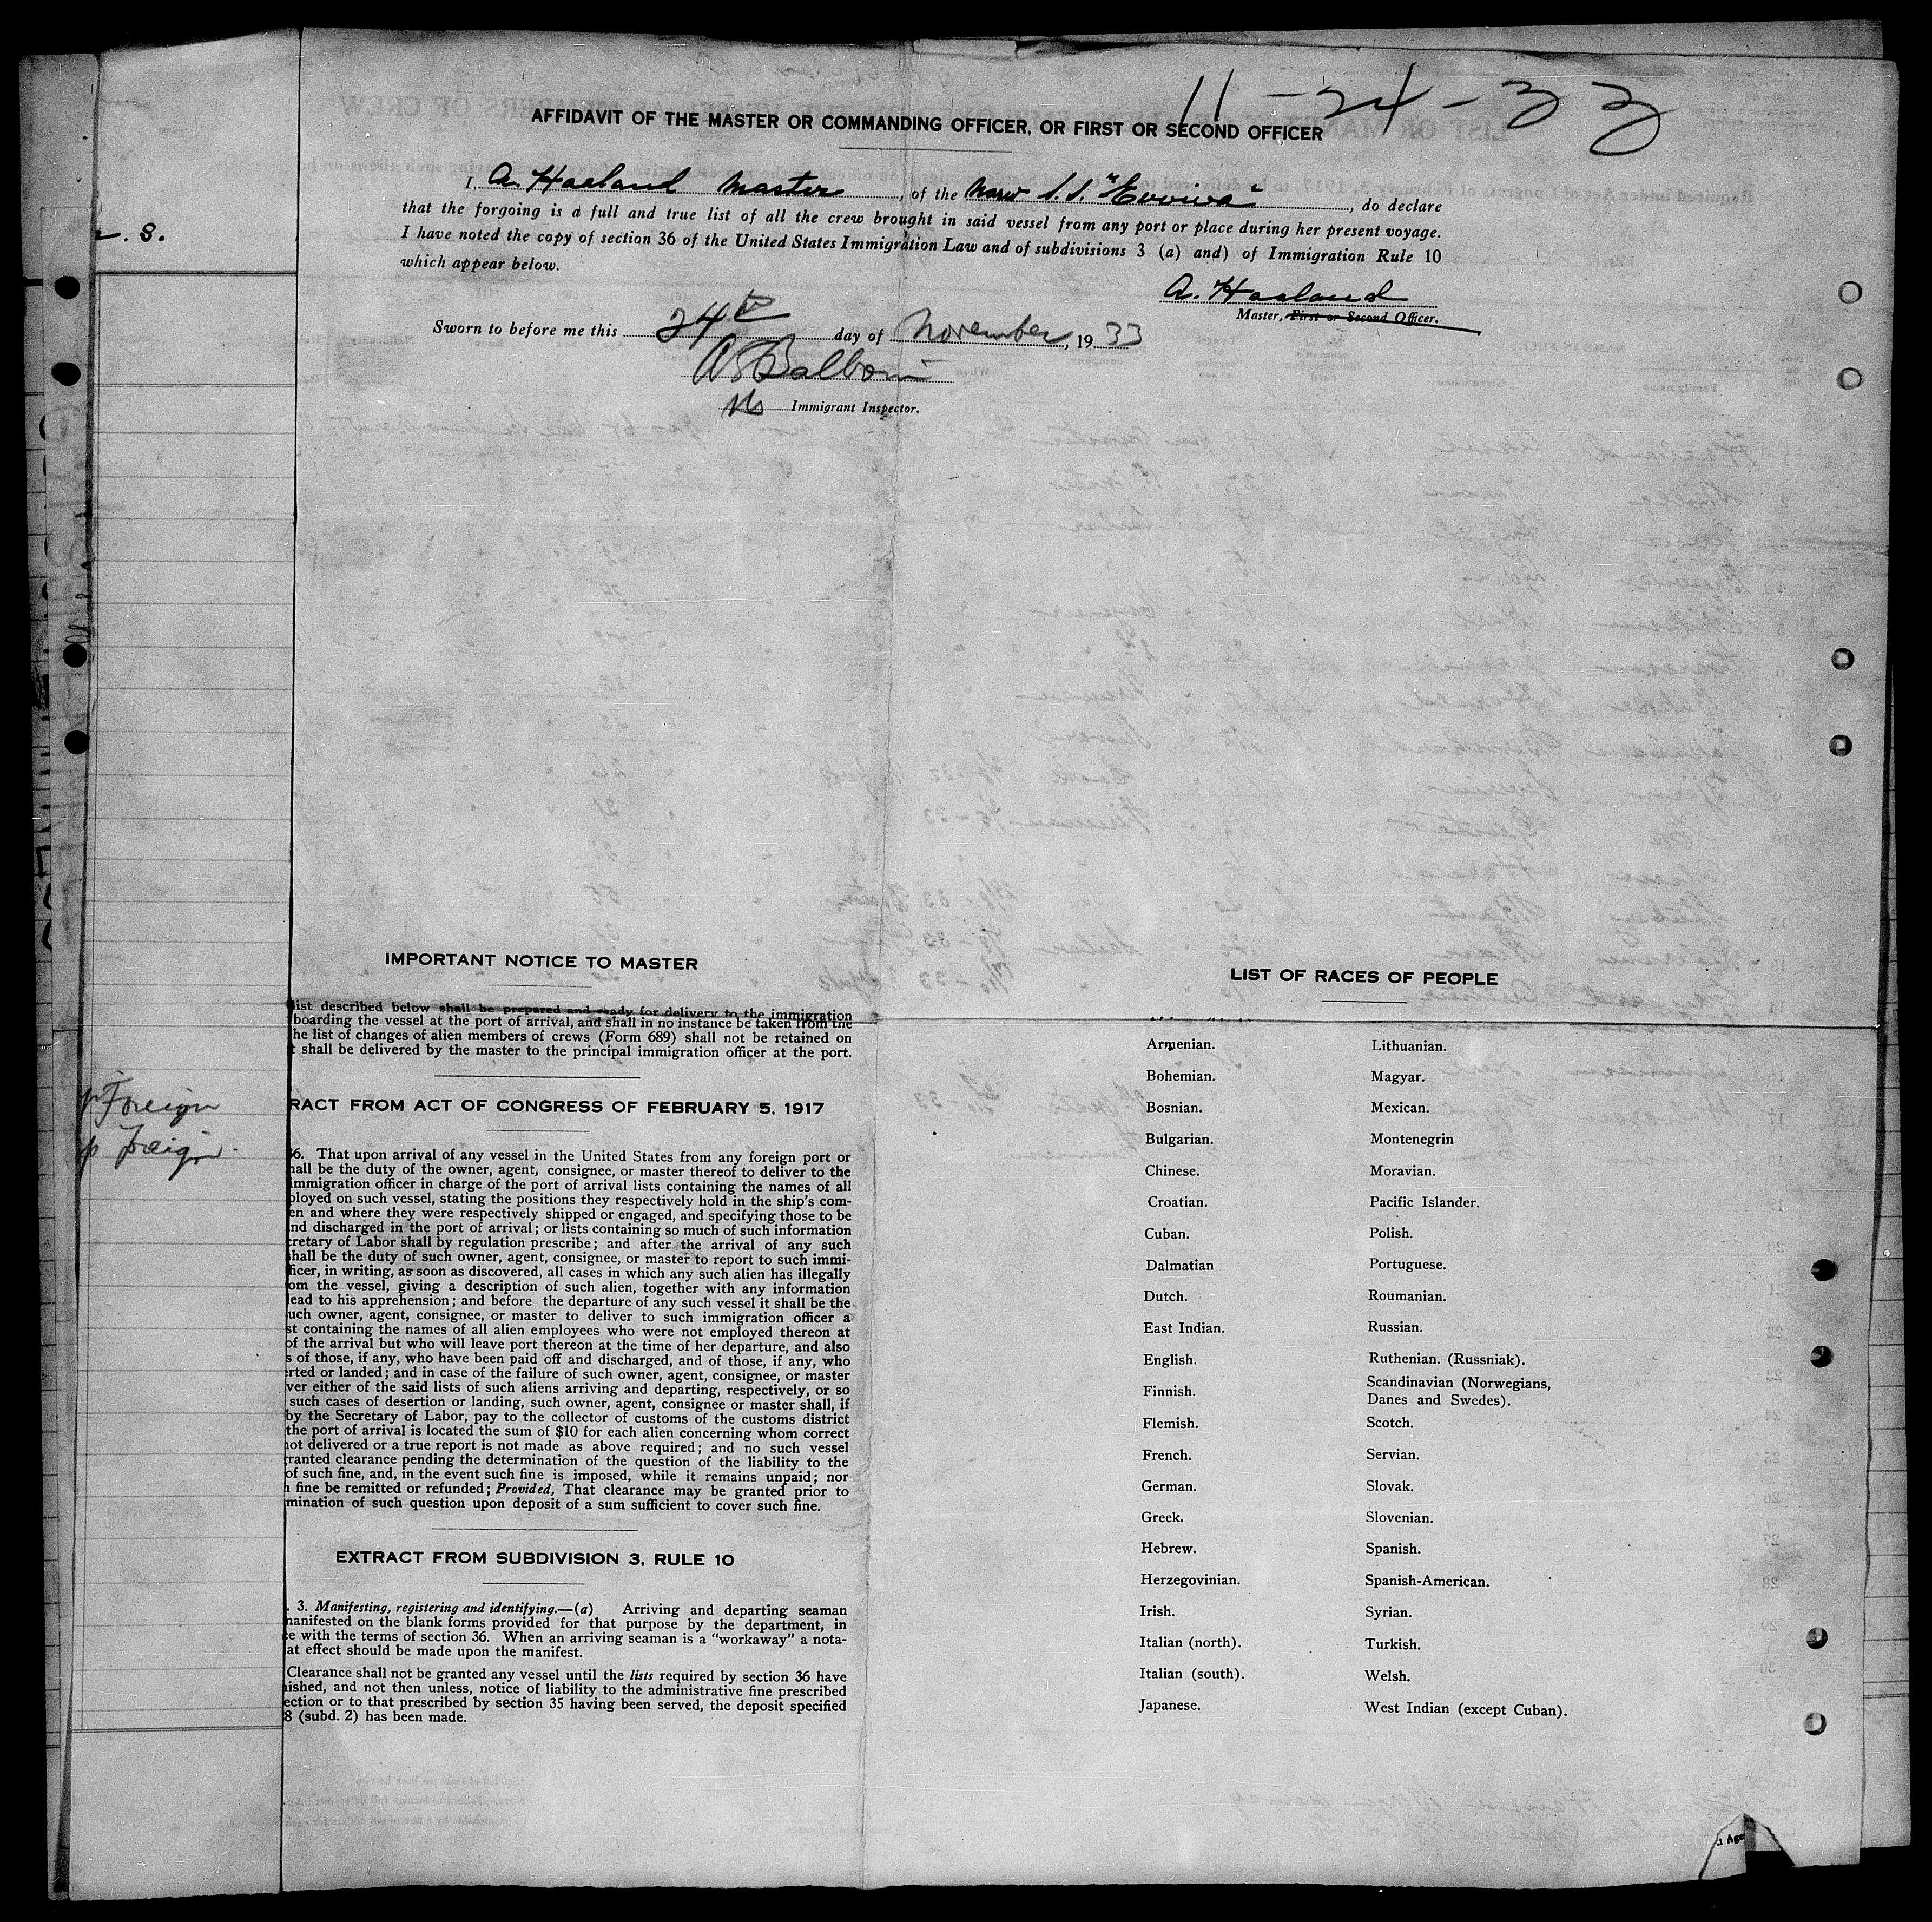 11-24-33
AFFIDAVIT OF THE MASTER OR COMMANDING OFFICER, OR FIRST OR SECOND OFFICER
I, A. Haaland Master, of the Norw S.S. "Evviva", do declare
that the forgoing is a full and true list of all the crew brought in said vessel from any port or place during her present voyage.
I have noted the copy of section 36 of the United States Immigration Law and of subdivisions 3 (a) and) of Immigration Rule 10
which appear below.
A. Haaland
Master, First or Second Officer.
Sworn to before me this 24th day of November, 1933
Immigrant Inspector.
. S.
Foreign
Foreign.
IMPORTANT NOTICE TO MASTER
list described below shall be prepared and ready for delivery to the immigration
boarding the vessel at the port of arrival, and shall in no instance be taken from the
he list of changes of alien members of crews (Form 689) shall not be retained on
t shall be delivered by the master to the principal immigration officer at the port.
RACT FROM ACT OF CONGRESS OF FEBRUARY 5, 1917
36. That upon arrival of any vessel in the United States from any foreign port or
hall be the duty of the owner, agent, consignee, or master thereof to deliver to the
immigration officer in charge of the port of arrival lists containing the names of all
ployed on such vessel, stating the positions they respectively hold in the ship's com-
en and where they were respectively shipped or engaged, and specifying those to be
nd discharged in the port of arrival; or lists containing so much of such information
cretary of Labor shall by regulation prescribe; and after the arrival of any such
hall be the duty of such owner, agent, consignee, or master to report to such immi-
ficer, in writing, as soon as discovered, all cases in which any such alien has illegally
om the vessel, giving a description of such alien, together with any information
lead to his apprehension; and before the departure of any such vessel it shall be the
uch owner, agent, consignee, or master to deliver to such immigration officer a
st containing the names of all alien employees who were not employed thereon at
of the arrival but who will leave port thereon at the time of her departure, and also
s of those, if any, who have been paid off and discharged, and of those, if any, who
rted or landed; and in case of the failure of such owner, agent, consignee, or master
ver either of the said lists of such aliens arriving and departing, respectively, or so
such cases of desertion or landing, such owner, agent, consignee or master shall, if
by the Secretary of Labor, pay to the collector of customs of the customs district
the port of arrival is located the sum of $10 for each alien concerning whom correct
not delivered or a true report is not made as above required; and no such vessel
ranted clearance pending the determination of the question of the liability to the
of such fine, and, in the event such fine is imposed, while it remains unpaid; nor
h fine be remitted or refunded; Provided, That clearance may be granted prior to
mination of such question upon deposit of a sum sufficient to cover such fine.
EXTRACT FROM SUBDIVISION 3, RULE 10
. 3. Manifesting, registering and identifying.—(a) Arriving and departing seaman
manifested on the blank forms provided for that purpose by the department, in
ce with the terms of section 36. When an arriving seaman is a "workaway" a nota-
at effect should be made upon the manifest.
Clearance shall not be granted any vessel until the lists required by section 36 have
nished, and not then unless, notice of liability to the administrative fine prescribed
ection or to that prescribed by section 35 having been served, the deposit specified
8 (subd. 2) has been made.
LIST OF RACES OF PEOPLE
Armenian. Lithuanian.
Bohemian. Magyar.
Bosnian. Mexican.
Bulgarian. Montenegrin
Chinese. Moravian.
Croatian. Pacific Islander.
Cuban. Polish.
Dalmatian Portuguese.
Dutch. Roumanian.
East Indian. Russian.
English. Ruthenian. (Russniak).
Finnish. Scandinavian (Norwegians,
Danes and Swedes).
Flemish. Scotch.
French. Servian.
German. Slovak.
Greek. Slovenian.
Hebrew. Spanish.
Herzegovinian. Spanish-American.
Irish. Syrian.
Italian (north). Turkish.
Italian (south). Welsh.
Japanese. West Indian (except Cuban).